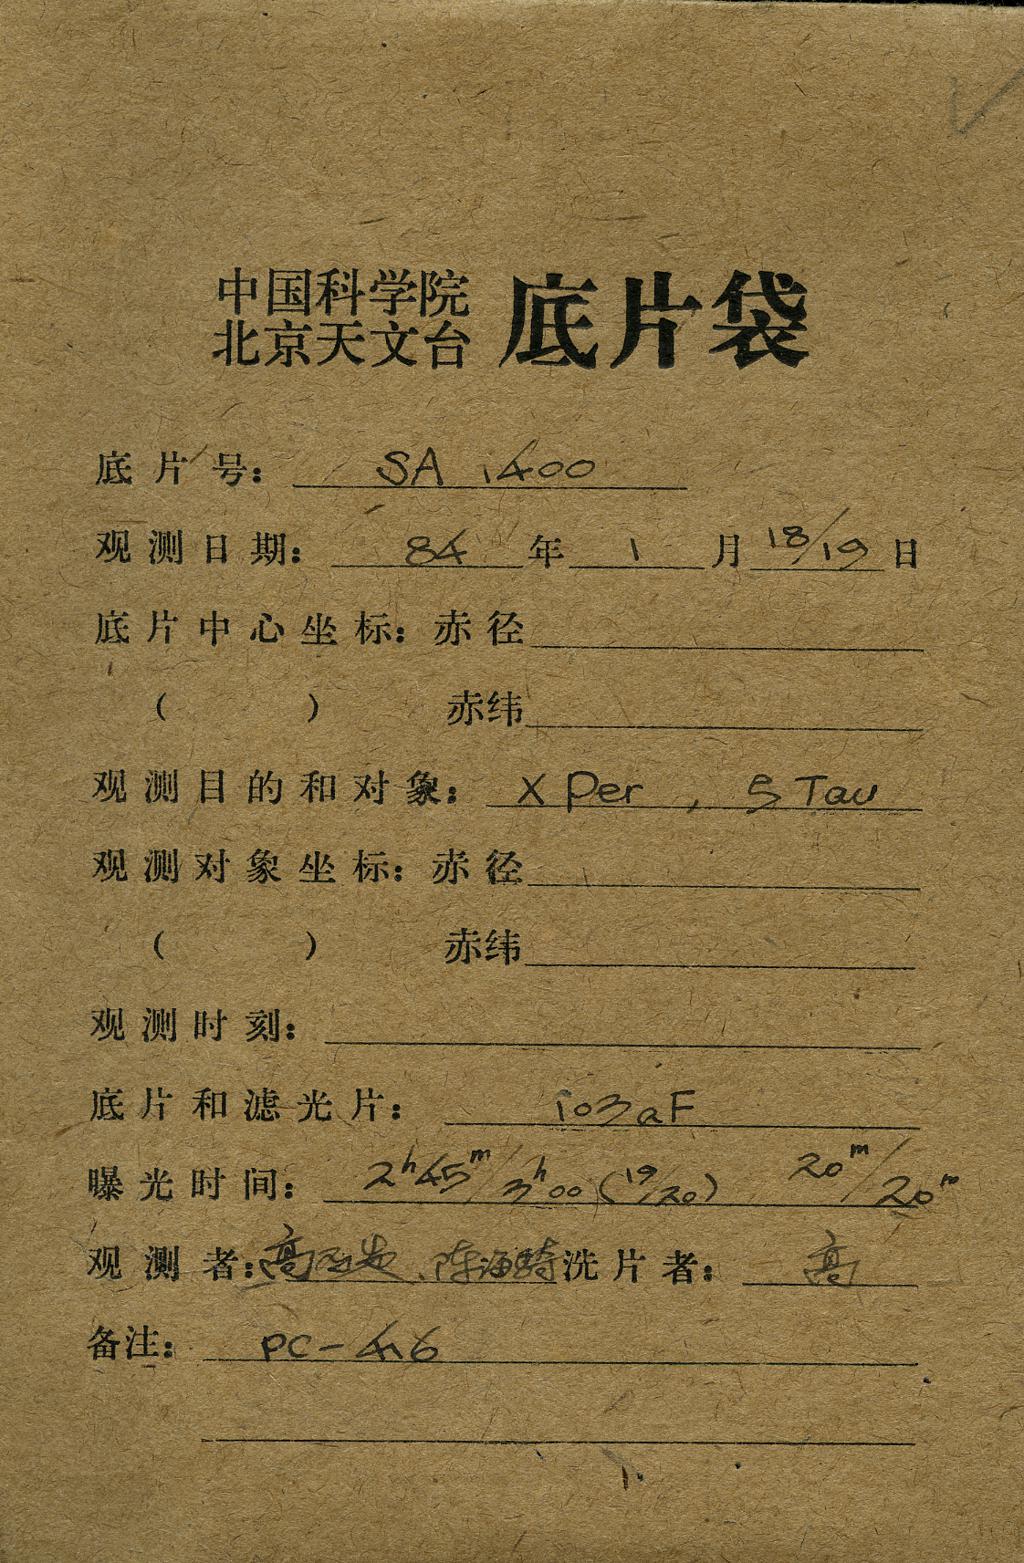 中国科学院
北京天文台 底片袋
底片号： SA 1400
观测日期： 84 年 1 月 18/19 日
底片中心坐标：赤径
（ ） 赤纬
观测目的和对象： X Per , 5 Tau
观测对象坐标：赤径
（ ） 赤纬
观测时刻：
底片和滤光片： 103aF
曝光时间： 2h45m/3h00 (19/20) 20m/20m
观测者： 高 、陈海 洗片者： 高
备注： PC-46